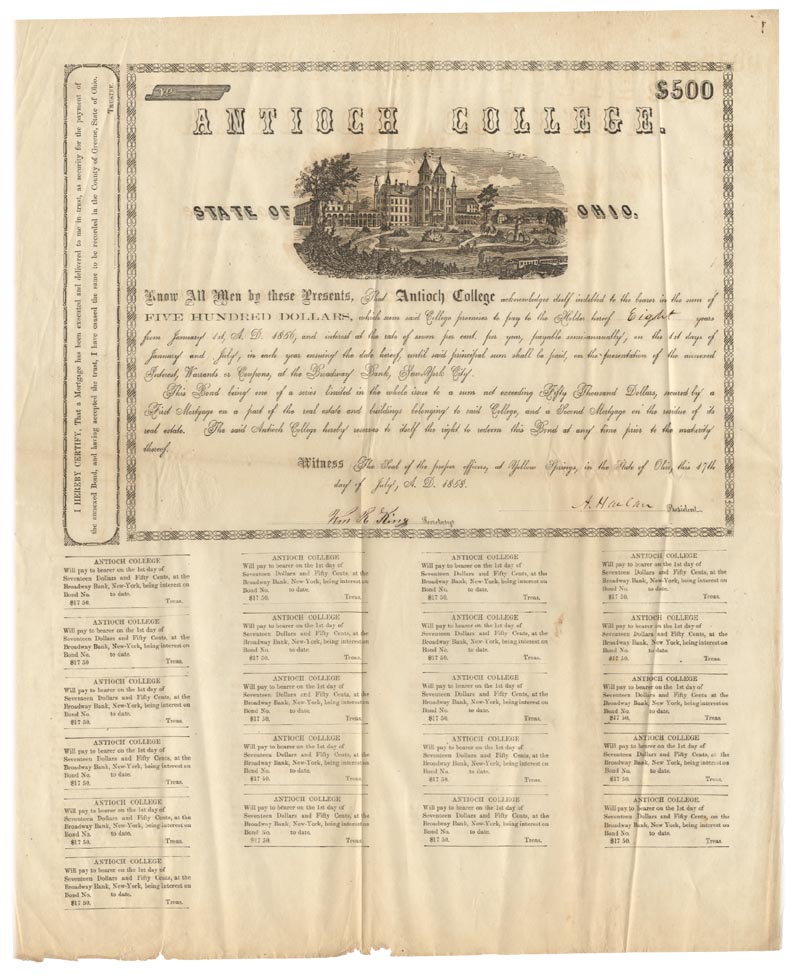 I HEREBY CERTIFY, That a Mortgage has been executed and delivered to me in trust, as security for the payment of
the annexed Bond, and having accepted the trust, I have caused the same to be recorded in the County of Greene, State of Ohio.
TRUSTEE.
No.
$500
ANTIOCH COLLEGE.
STATE OF OHIO.
Know All Men by these Presents, That Antioch College acknowledges itself indebted to the bearer in the sum of
FIVE HUNDRED DOLLARS, which sum said College promises to pay to the Holder hereof Eight years
from January 1st, A. D. 1856, and interest at the rate of seven per cent. per year, payable semi-annually, on the 1st days of
January and July, in each year ensuing the date hereof, until said principal sum shall be paid, on the presentation of the annexed
Interest, Warrants or Coupons, at the Broadway Bank, New-York City.
This Bond being one of a series limited in the whole issue to a sum not exceeding Fifty Thousand Dollars, secured by a
First Mortgage on a part of the real estate and buildings belonging to said College, and a Second Mortgage on the residue of its
real estate. The said Antioch College hereby reserves to itself the right to redeem this Bond at any time prior to the maturity
thereof.
Witness The Seal of the proper officers, at Yellow Springs, in the State of Ohio, this 17th
day of July, A. D. 1855.
A. Harlan President.
Wm R. King Secretary.
ANTIOCH COLLEGE
Will pay to bearer on the 1st day of
Seventeen Dollars and Fifty Cents, at the
Broadway Bank, New-York, being interest on
Bond No. to date.
$17 50. Treas.
ANTIOCH COLLEGE
Will pay to bearer on the 1st day of
Seventeen Dollars and Fifty Cents, at the
Broadway Bank, New-York, being interest on
Bond No. to date.
$17 50 Treas.
ANTIOCH COLLEGE
Will pay to bearer on the 1st day of
Seventeen Dollars and Fifty Cents, at the
Broadway Bank, New-York, being interest on
Bond No. to date.
$17 50. Treas.
ANTIOCH COLLEGE
Will pay to bearer on the 1st day of
Seventeen Dollars and Fifty Cents, at the
Broadway Bank, New-York, being interest on
Bond No. to date.
$17 50. Treas.
ANTIOCH COLLEGE
Will pay to bearer on the 1st day of
Seventeen Dollars and Fifty Cents, at the
Broadway Bank, New-York, being interest on
Bond No. to date.
$17 50. Treas.
ANTIOCH COLLEGE
Will pay to bearer on the 1st day of
Seventeen Dollars and Fifty Cents, at the
Broadway Bank, New-York, being interest on
Bond No. to date.
$17 50. Treas.
ANTIOCH COLLEGE
Will pay to bearer on the 1st day of
Seventeen Dollars and Fifty Cents, at the
Broadway Bank, New-York, being interest on
Bond No. to date.
$17 50. Treas.
ANTIOCH COLLEGE
Will pay to bearer on the 1st day of
Seventeen Dollars and Fifty Cents, at the
Broadway Bank, New-York, being interest on
Bond No. to date.
$17 50. Treas.
ANTIOCH COLLEGE
Will pay to bearer on the 1st day of
Seventeen Dollars and Fifty Cents, at the
Broadway Bank, New-York, being interest on
Bond No. to date.
$17 50. Treas.
ANTIOCH COLLEGE
Will pay to bearer on the 1st day of
Seventeen Dollars and Fifty Cents, at the
Broadway Bank, New-York, being interest on
Bond No. to date.
$17 50. Treas.
ANTIOCH COLLEGE
Will pay to bearer on the 1st day of
Seventeen Dollars and Fifty Cents, at the
Broadway Bank, New-York, being interest on
Bond No. to date.
$17 50. Treas.
ANTIOCH COLLEGE
Will pay to bearer on the 1st day of
Seventeen Dollars and Fifty Cents, at the
Broadway Bank, New-York, being interest on
Bond No. to date.
$17 50. Treas.
ANTIOCH COLLEGE
Will pay to bearer on the 1st day of
Seventeen Dollars and Fifty Cents, at the
Broadway Bank, New-York, being interest on
Bond No. to date.
$17 50. Treas.
ANTIOCH COLLEGE
Will pay to bearer on the 1st day of
Seventeen Dollars and Fifty Cents, at the
Broadway Bank, New-York, being interest on
Bond No. to date.
$17 50. Treas.
ANTIOCH COLLEGE
Will pay to bearer on the 1st day of
Seventeen Dollars and Fifty Cents, at the
Broadway Bank, New-York, being interest on
Bond No. to date.
$17 50. Treas.
ANTIOCH COLLEGE
Will pay to bearer on the 1st day of
Seventeen Dollars and Fifty Cents, at the
Broadway Bank, New-York, being interest on
Bond No. to date.
$17 50. Treas.
ANTIOCH COLLEGE
Will pay to bearer on the 1st day of
Seventeen Dollars and Fifty Cents, at the
Broadway Bank, New-York, being interest on
Bond No. to date.
$17 50. Treas.
ANTIOCH COLLEGE
Will pay to bearer on the 1st day of
Seventeen Dollars and Fifty Cents, at the
Broadway Bank, New-York, being interest on
Bond No. to date.
$17 50. Treas.
ANTIOCH COLLEGE
Will pay to bearer on the 1st day of
Seventeen Dollars and Fifty Cents, at the
Broadway Bank, New-York, being interest on
Bond No. to date.
$17 50. Treas.
ANTIOCH COLLEGE
Will pay to bearer on the 1st day of
Seventeen Dollars and Fifty Cents, on the
Broadway Bank, New-York, being interest on
Bond No. to date.
$17 50. Treas.
ANTIOCH COLLEGE
Will pay to bearer on the 1st day of
Seventeen Dollars and Fifty Cents, on the
Broadway Bank, New-York, being interest on
Bond No. to date.
$17 50. Treas.